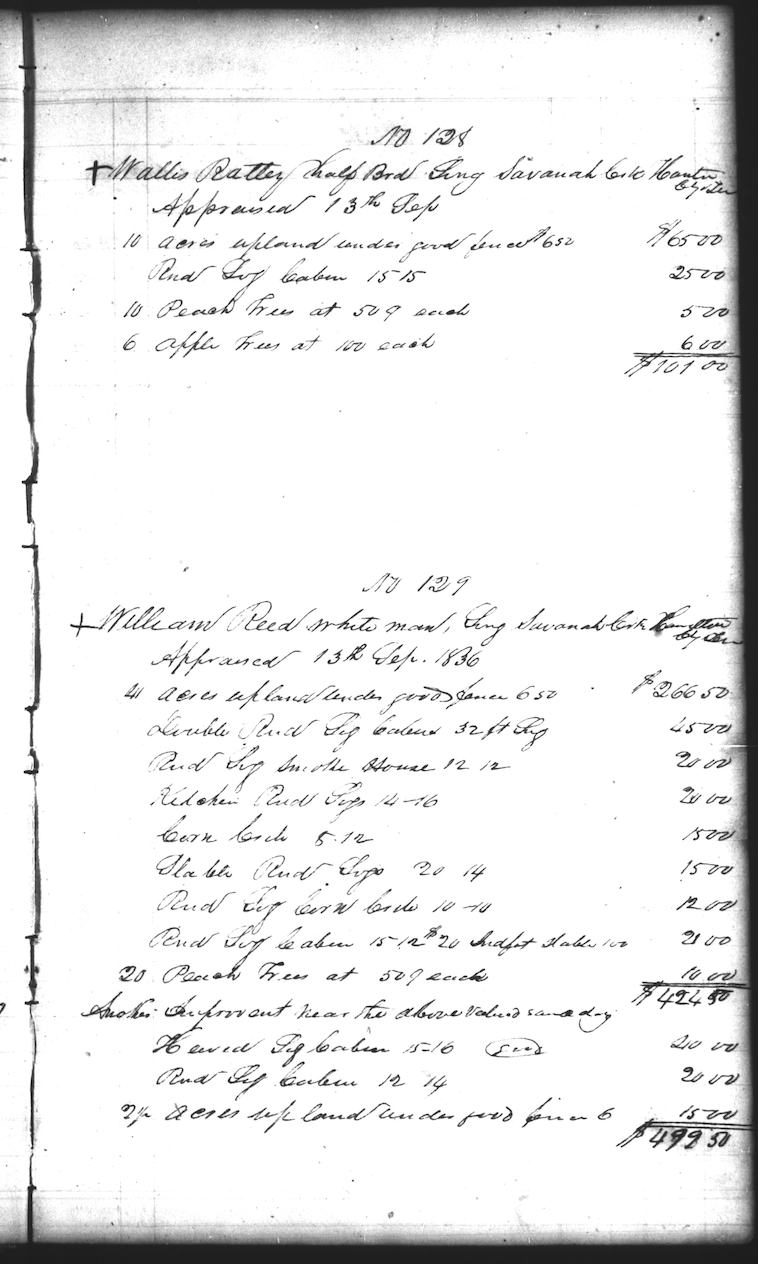 No 128
+ Wallis Ratley half Brd Lvng Savanah Crk
Appraised 13th Sep
10 acres upland under good fence $6 50 $65 00
Rnd Log Cabin 15-15 25 00
10 Peach Trees at 50¢ each 5 00
6 apple Trees at 100 each 6 00
$101 00
No 129
+ William Reed white man, Lvng Savanah Crk Hamilton
Appraised 13th Sep. 1836
41 acres upland under good fence 6 50 $266 50
Double Rnd Log Cabins 32 ft Lng 45 00
Rnd Log Smoke House 12 12 20 00
Kidchen Rnd Logs 14-16 20 00
Corn Crib 8-12 15 00
Stable Rnd Logs 20 14 15 00
Rnd Log Corn Crib 10-10 12 00
Rnd Log Cabin 15-12 $20 Indft Stable 100 21 00
20 Peach Trees at 50¢ each 10 00
$424 50
Another Improvent near the above valued same day
Hewed Log Cabin 15-16 good 40 00
Rnd Log Cabin 12 14 20 00
2½ acres upland under good fence 6 15 00
$499 50